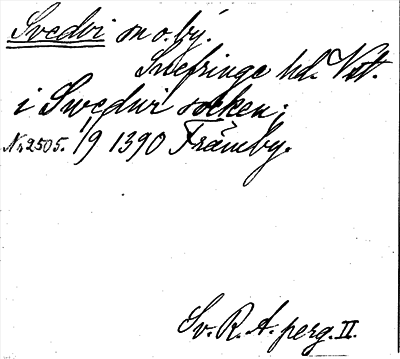 Svedvi sn o. by.
Snefringe hd. Vstl.
i Swedwi socken;
Nr 2505. 1/9 1390 Främby.
Sv. R. A. perg. II.